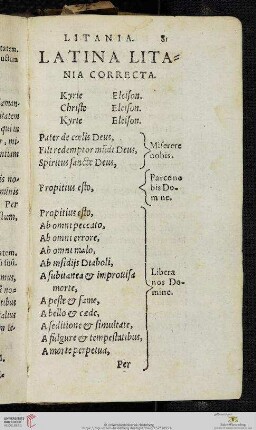 LITANIA. 81
LATINA LITA-
NIA CORRECTA.
Kyrie Eleison.
Christe Eleison.
Kyrie Eleison.
Pater de cœlis Deus,
Fili redemptor mūdi Deus,
Spiritus sancte Deus,
Miserere
nobis.
Propitius esto,
Parce no
bis Do-
mine.
Propitius esto,
Ab omni peccato,
Ab omni errore,
Ab omni malo,
Ab insidijs Diaboli,
A subitanea & improvisa
morte,
A peste & fame,
A bello & cæde,
A seditione & simultate,
A fulgure & tempestatibus,
A morte perpetua,
Libera
nos Do-
mine.
Per